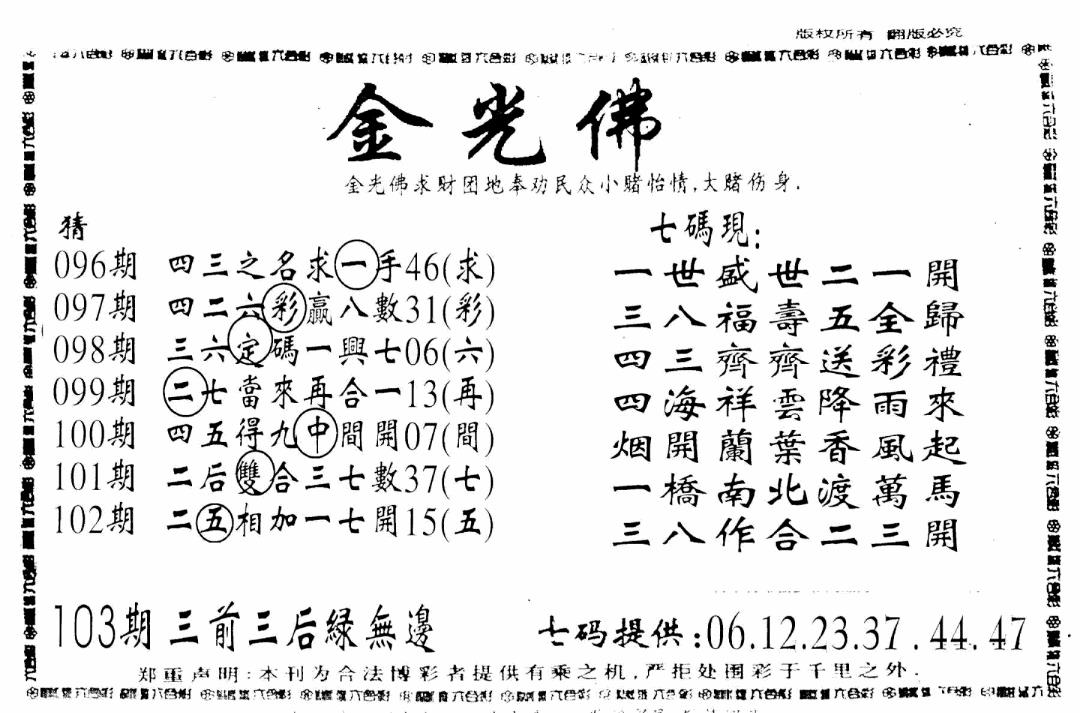 版权所有 翻版必究
金光佛
金光佛求财团地奉劝民众小赌怡情,大赌伤身.
猜
096期 四三之名求一手46(求)
097期 四二六彩贏八數31(彩)
098期 三六定碼一興七06(六)
099期 二七當來再合一13(再)
100期 四五得九中間開07(間)
101期 二后雙合三七數37(七)
102期 二五相加一七開15(五)
七碼現:
一世盛世二一開
三八福壽五全歸
四三齊齊送彩禮
四海祥雲降雨來
烟開蘭葉香風起
一橋南北渡萬馬
三八作合二三開
103期 三前三后緑無邊
七码提供:06.12.23.37.44.47
郑重声明:本刊为合法博彩者提供有乘之机,严拒处围彩于千里之外.